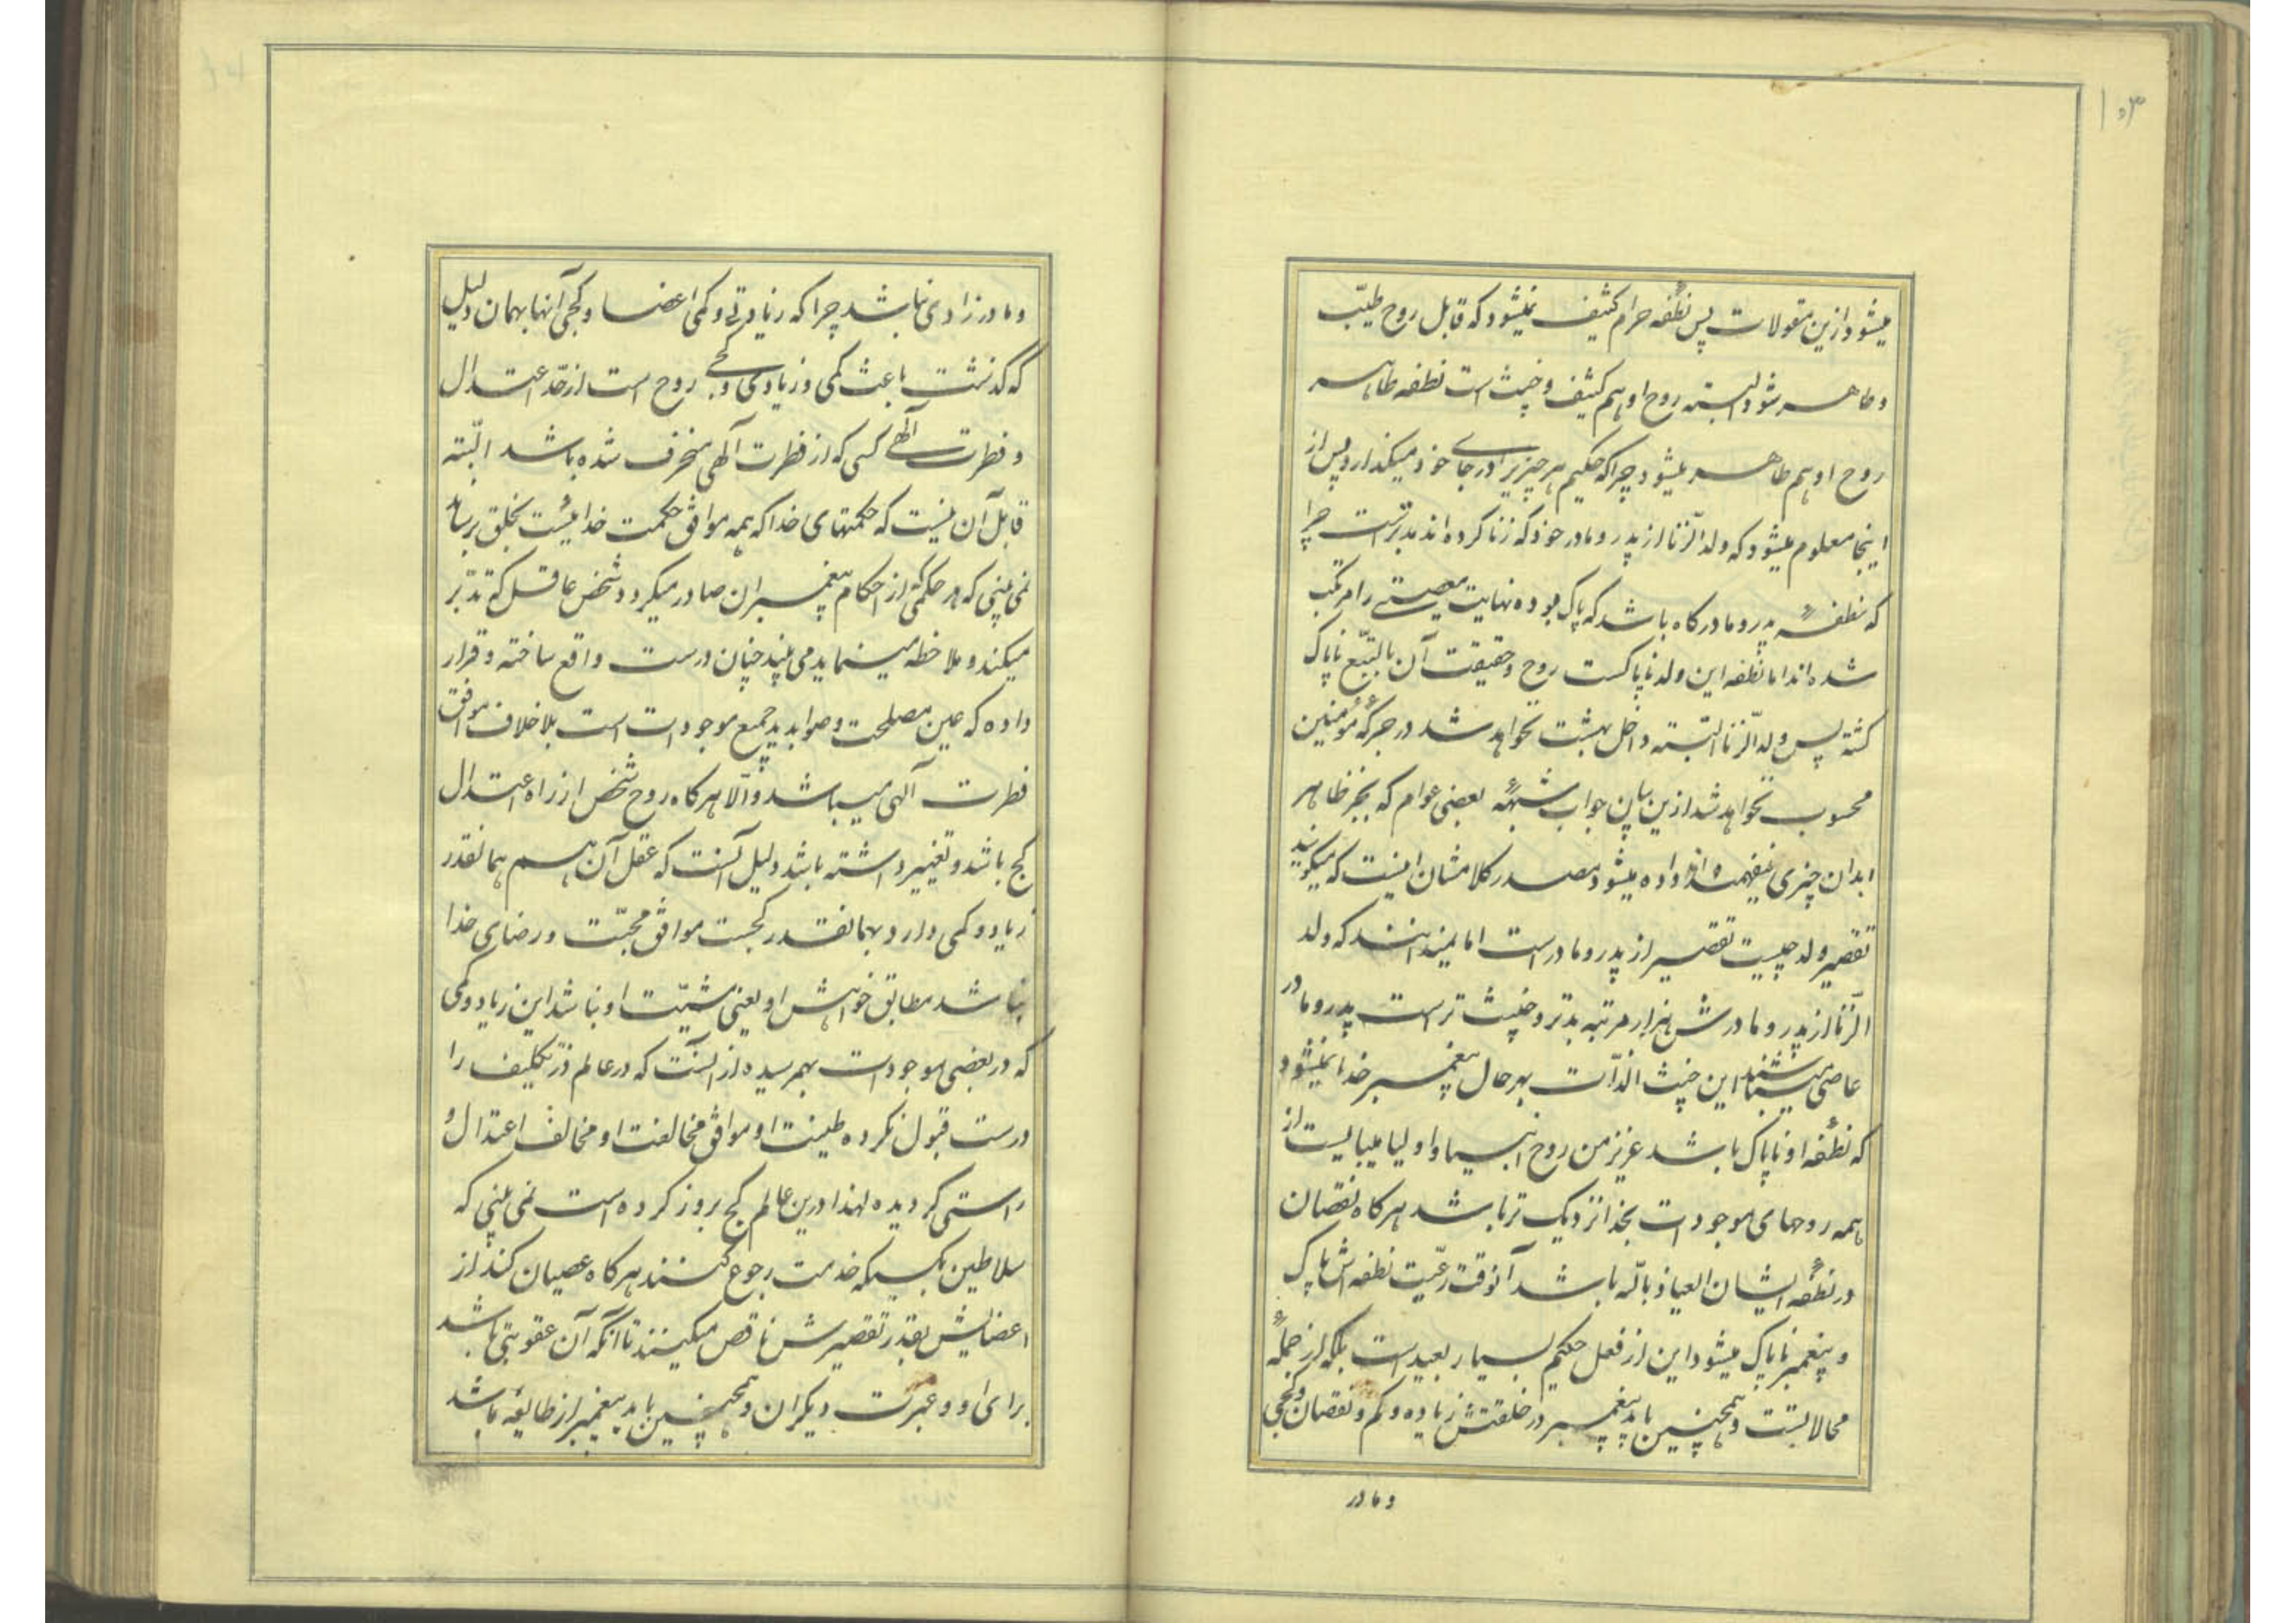 ۱۰۳
میشود ازین مقولات پس نطفهٔ حرام کثیف نمیشود که قابل روح طیّب
و طاهر شود البته روح او هم کثیف و خبیث است نطفه طاهر
روح او هم طاهر میشود چرا که حکیم هر چیزیرا در جای خود میکذارد پس از
اینجا معلوم میشود که ولد الزّنا از پدر و مادر خود که زنا کرده اند بدترست چرا
که نطفهٔ پدر و مادر کاه باشد که پاک بوده نهایت معصیتی را مرتکب
شده اند اما نطفه این ولد ناپاکست روح و حقیقت آن بالتبّع ناپاک
کشته پس ولد الزّنا البتّه داخل بهشت نخواهد شد در جرکهٔ مؤمنین
محسوب نخواهد شد ازین بیان جواب شبههٔ بعضی عوام که بجز ظاهر
ابدان چیزی نمیفهمند داده میشود مصدر کلامشان اینست که میکویند
تقصیر ولد چیست تقصیر از پدر و مادر است اما نمیدانند که ولد
الزّنا از پدر و مادرش هزار مرتبه بدتر و خبیث ترست پدر و مادر
عاصی میباشند این خبیث الذّات بهر حال پیغمبر خدا نمیشود
که نطفهٔ او ناپاک باشد عزیز من روح انبیا و اولیا میبایست از
همه روحهای موجودات بخدا نزدیک تر باشد هرکاه نقصان
در نطفهٔ ایشان العیاذ بالله باشد آنوقت رعیّت نطفه اش پاک
و پیغمبر ناپاک میشود این از فعل حکیم بسیار بعید است بلکه از جملهٔ
محالاتست و همچنین باید پیغمبر در خلقتش زیاده و کم و نقصان و کجی
و مادر
و مادر زادی نباشد چرا که زیادتی و کمی اعضا و کجی آنها بهمان دلیل
که کذشت باعث کمی و زیادی و کجی روح است از حدّ اعتدال
و فطرت الٓهی کسی که از فطرت آلهی منحرف شده باشد البّته
قابل آن نیست که حکمتهای خدا که همه موافق حکمت خدائیست بخلق برساند
نمی بینی که هر حکمی از احکام پیغمبران صادر میکردد شخص عاقل که تدبّر
میکند و ملاحظه مینماید می بیند چنان درست واقع ساخته و قرار
داده که عین مصلحت و صوابدید جمیع موجودات است بلا خلاف موافق
فطرت آلهی میباشد و الّا هرکاه روح شخص از راه اعتدال
کج باشد و تغییر داشته باشد دلیل آنست که عقل آن هم همانقدر
زیاد و کمی دارد بهمانقدر کجست موافق محبّت و رضای خدا
نباشد مطابق خواهش او یعنی مشیّت او نباشد این زیاد و کمی
که در بعضی موجودات بهمرسیده از آنست که در عالم ذرّ تکلیف را
درست قبول نکرده طینت او موافق مخالفت او مخالف اعتدال و
راستی کردیده لهذا درین عالم کج بروز کرده است نمی بینی که
سلاطین بکسیکه خدمت رجوع کنند هرکاه عصیان کند از
اعضایش بقدر تقصیرش ناقص میکنند تا آنکه آن عقوبتی باشد
برای او و عبرت دیکران و همچنین باید پیغمبر از طایفه باشد